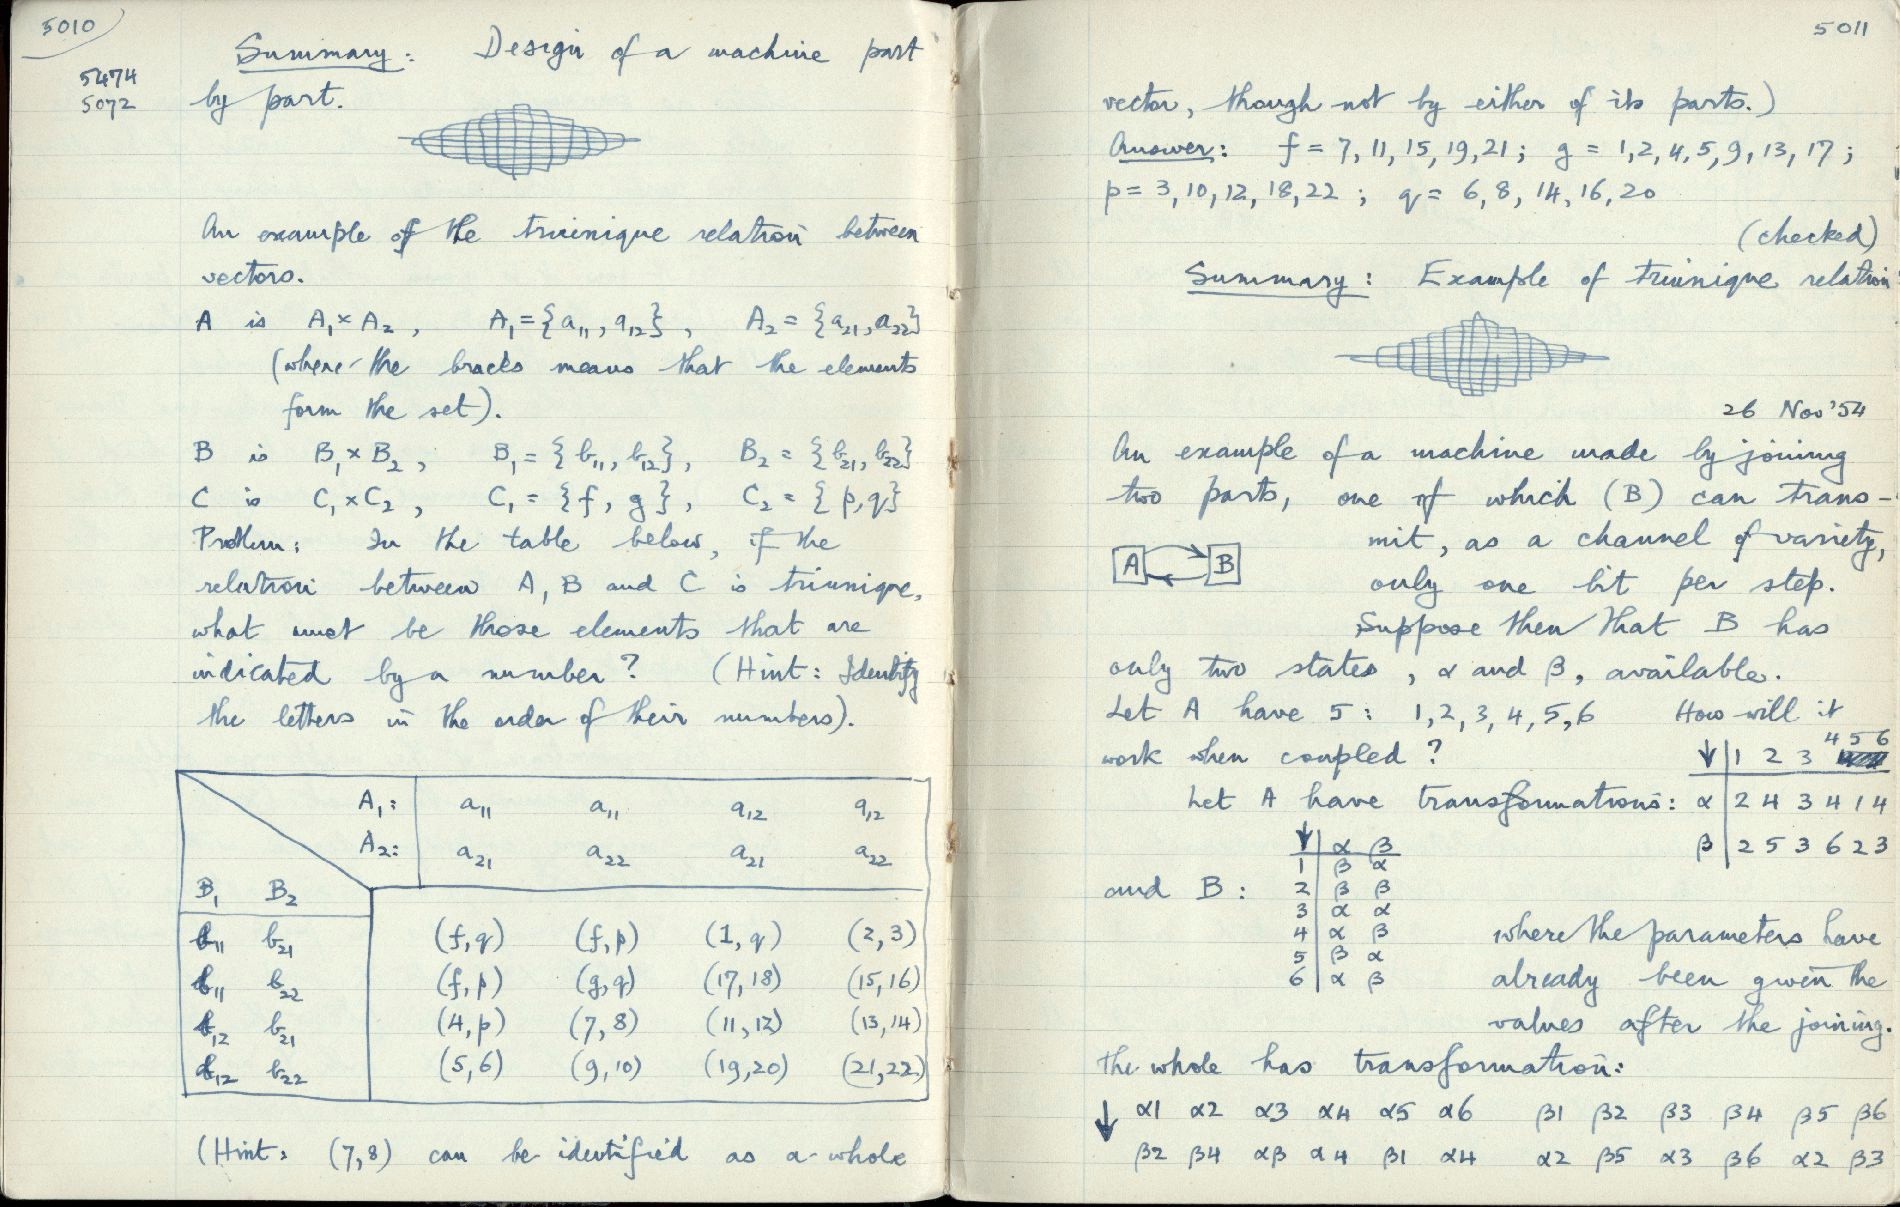 5010
5474
5072
Summary: Design of a machine part
by part.
An example of the triunique relation between
vectors.
A is A₁×A₂, A₁={a₁₁, a₁₂}, A₂={a₂₁, a₂₂}
(where the bracks means that the elements
form the set).
B is B₁×B₂, B₁={b₁₁, b₁₂}, B₂={b₂₁, b₂₂}
C is C₁×C₂, C₁={f, g}, C₂={p,q}
Problem: In the table below, if the
relation between A, B and C is triunique,
what must be those elements that are
indicated by a number? (Hint: Identify
the letters in the order of their numbers).
A₁: a₁₁ a₁₁ a₁₂ a₁₂
A₂: a₂₁ a₂₂ a₂₁ a₂₂
B₁ B₂
b₁₁ b₂₁ (f,q) (f,p) (1,q) (2,3)
b₁₁ b₂₂ (f,p) (g,q) (17,18) (15,16)
b₁₂ b₂₁ (4,p) (7,8) (11,12) (13,14)
b₁₂ b₂₂ (5,6) (9,10) (19,20) (21,22)
(Hint: (7,8) can be identified as a whole
5011
vector, though not by either of its parts.)
Answer: f = 7, 11, 15, 19, 21; g = 1,2,4,5,9,13,17;
p = 3,10,12,18,22; q = 6,8,14,16,20
(checked)
Summary: Example of triunique relation
26 Nov '54
An example of a machine made by joining
two parts, one of which (B) can trans-
mit, as a channel of variety,
A B
only one bit per step.
Suppose then that B has
only two states, α and β, available.
Let A have 5: 1,2,3,4,5,6 How will it
work when coupled?
↓ 1 2 3 4 5 6
Let A have transformations: α 2 4 3 4 1 4
β 2 5 3 6 2 3
and B:
↓ α β
1 β α
2 β β
3 α α
4 α β
5 β α
6 α β
where the parameters have
already been given the
values after the joining.
The whole has transformation:
↓ α1 α2 α3 α4 α5 α6 β1 β2 β3 β4 β5 β6
β2 β4 αβ α4 β1 α4 α2 β5 α3 β6 α2 β3